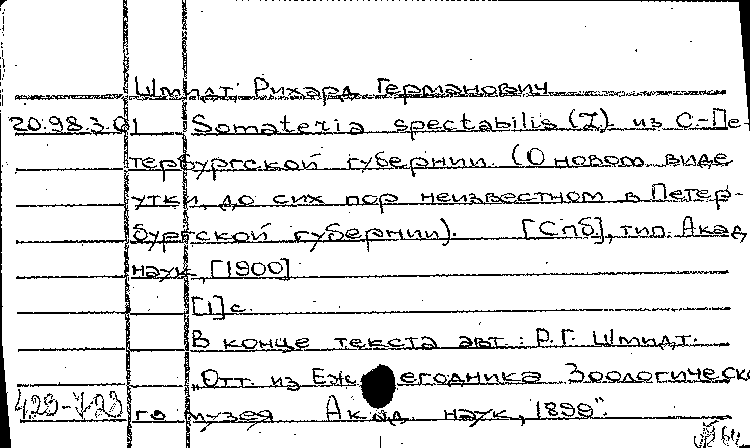 Шмидт Рихард Германович
20.98.3.01 Somateria spectabilis (L). из С-Пе-
тербургской губернии. (О новом виде
утки, до сих пор неизвестном в Петер-
бургской губернии). [Спб], тип. Акад
наук, [1900]
[1] с.
В конце текста авт.: Р.Г. Шмидт.
"Отт. из Ежегодника Зоологическо
го музея Акад. наук, 1899".